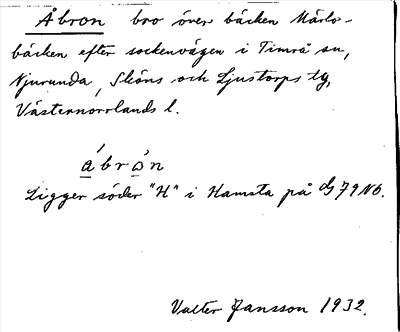 Åbron bro över bäcken Märlo-
bäcken efter sockenvägen i Timrå sn,
Njurunda, Sköns och Ljustorps tg,
Västernorrlands l.
åbrɷn
Ligger söder "H" i Hamsta på 79 Nb.
Valter Jansson 1932.